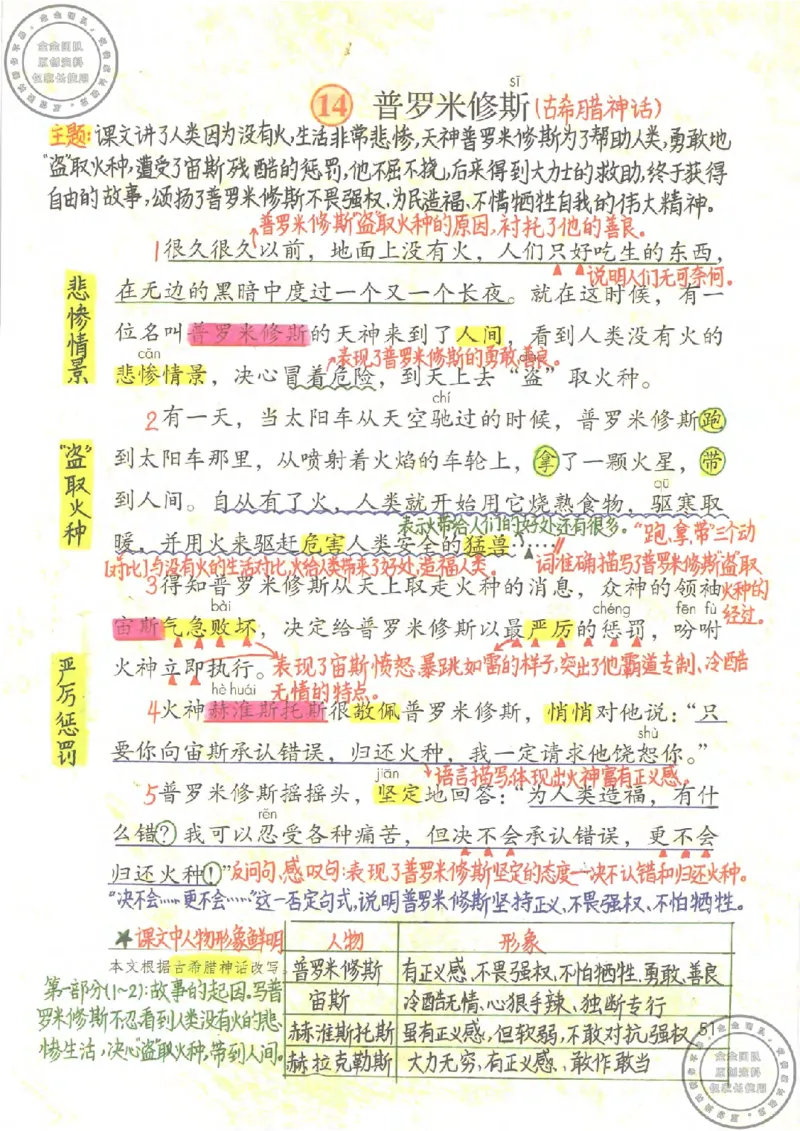 金金团队
原创资料
仅家长使用
sī
14 普罗米修斯(古希腊神话)
主题:课文讲了人类因为没有火,生活非常悲惨,天神普罗米修斯为了帮助人类,勇敢地
“盗”取火种,遭受了宙斯残酷的惩罚,他不屈不挠,后来得到大力士的救助,终于获得
自由的故事,颂扬了普罗米修斯不畏强权、为民造福、不惜牺牲自我的伟大精神。
普罗米修斯“盗”取火种的原因,衬托了他的善良。
1很久很久以前,地面上没有火,人们只好吃生的东西,
说明人们无可奈何。
悲惨情景
在无边的黑暗中度过一个又一个长夜。就在这时候,有一
位名叫普罗米修斯的天神来到了人间,看到人类没有火的
cǎn
表现了普罗米修斯的勇敢善良。
悲惨情景,决心冒着危险,到天上去“盗”取火种。
chí
2有一天,当太阳车从天空驰过的时候,普罗米修斯跑
“盗”取火种
到太阳车那里,从喷射着火焰的车轮上,拿了一颗火星,带
qū
到人间。自从有了火,人类就开始用它烧熟食物,驱寒取
表示火带给人们的好处还有很多。
“跑、拿、带”三个动
暖,并用火来驱赶危害人类安全的猛兽……
[对比]与没有火的生活对比,火给人类带来了好处,造福人类。
词准确描写了普罗米修斯“盗”取
火种的
经过。
3得知普罗米修斯从天上取走火种的消息,众神的领袖
bài chéng fēn fù
宙斯气急败坏,决定给普罗米修斯以最严厉的惩罚,吩咐
严厉惩罚
火神立即执行。
表现了宙斯愤怒、暴跳如雷的样子,突出了他霸道专制、冷酷
无情的特点。
hè huái
4火神赫淮斯托斯很敬佩普罗米修斯,悄悄对他说:“只
shù
要你向宙斯承认错误,归还火种,我一定请求他饶恕你。”
jiān
语言描写,体现出火神富有正义感。
5普罗米修斯摇摇头,坚定地回答:“为人类造福,有什
rěn
么错?我可以忍受各种痛苦,但决不会承认错误,更不会
归还火种!”
反问句、感叹句:表现了普罗米修斯坚定的态度—决不认错和归还火种。
“决不会……更不会……”这一否定句式,说明普罗米修斯坚持正义、不畏强权、不怕牺牲。
★课文中人物形象鲜明
本文根据古希腊神话改写。
第一部分(1~2):故事的起因。写普
罗米修斯不忍看到人类没有火的悲
惨生活,决心“盗”取火种,带到人间。
人物 形象
普罗米修斯 有正义感、不畏强权、不怕牺牲、勇敢、善良
宙斯 冷酷无情、心狠手辣、独断专行
赫淮斯托斯 虽有正义感,但软弱,不敢对抗强权
赫拉克勒斯 大力无穷,有正义感、敢作敢当
51
金金团队
原创资料
仅家长使用